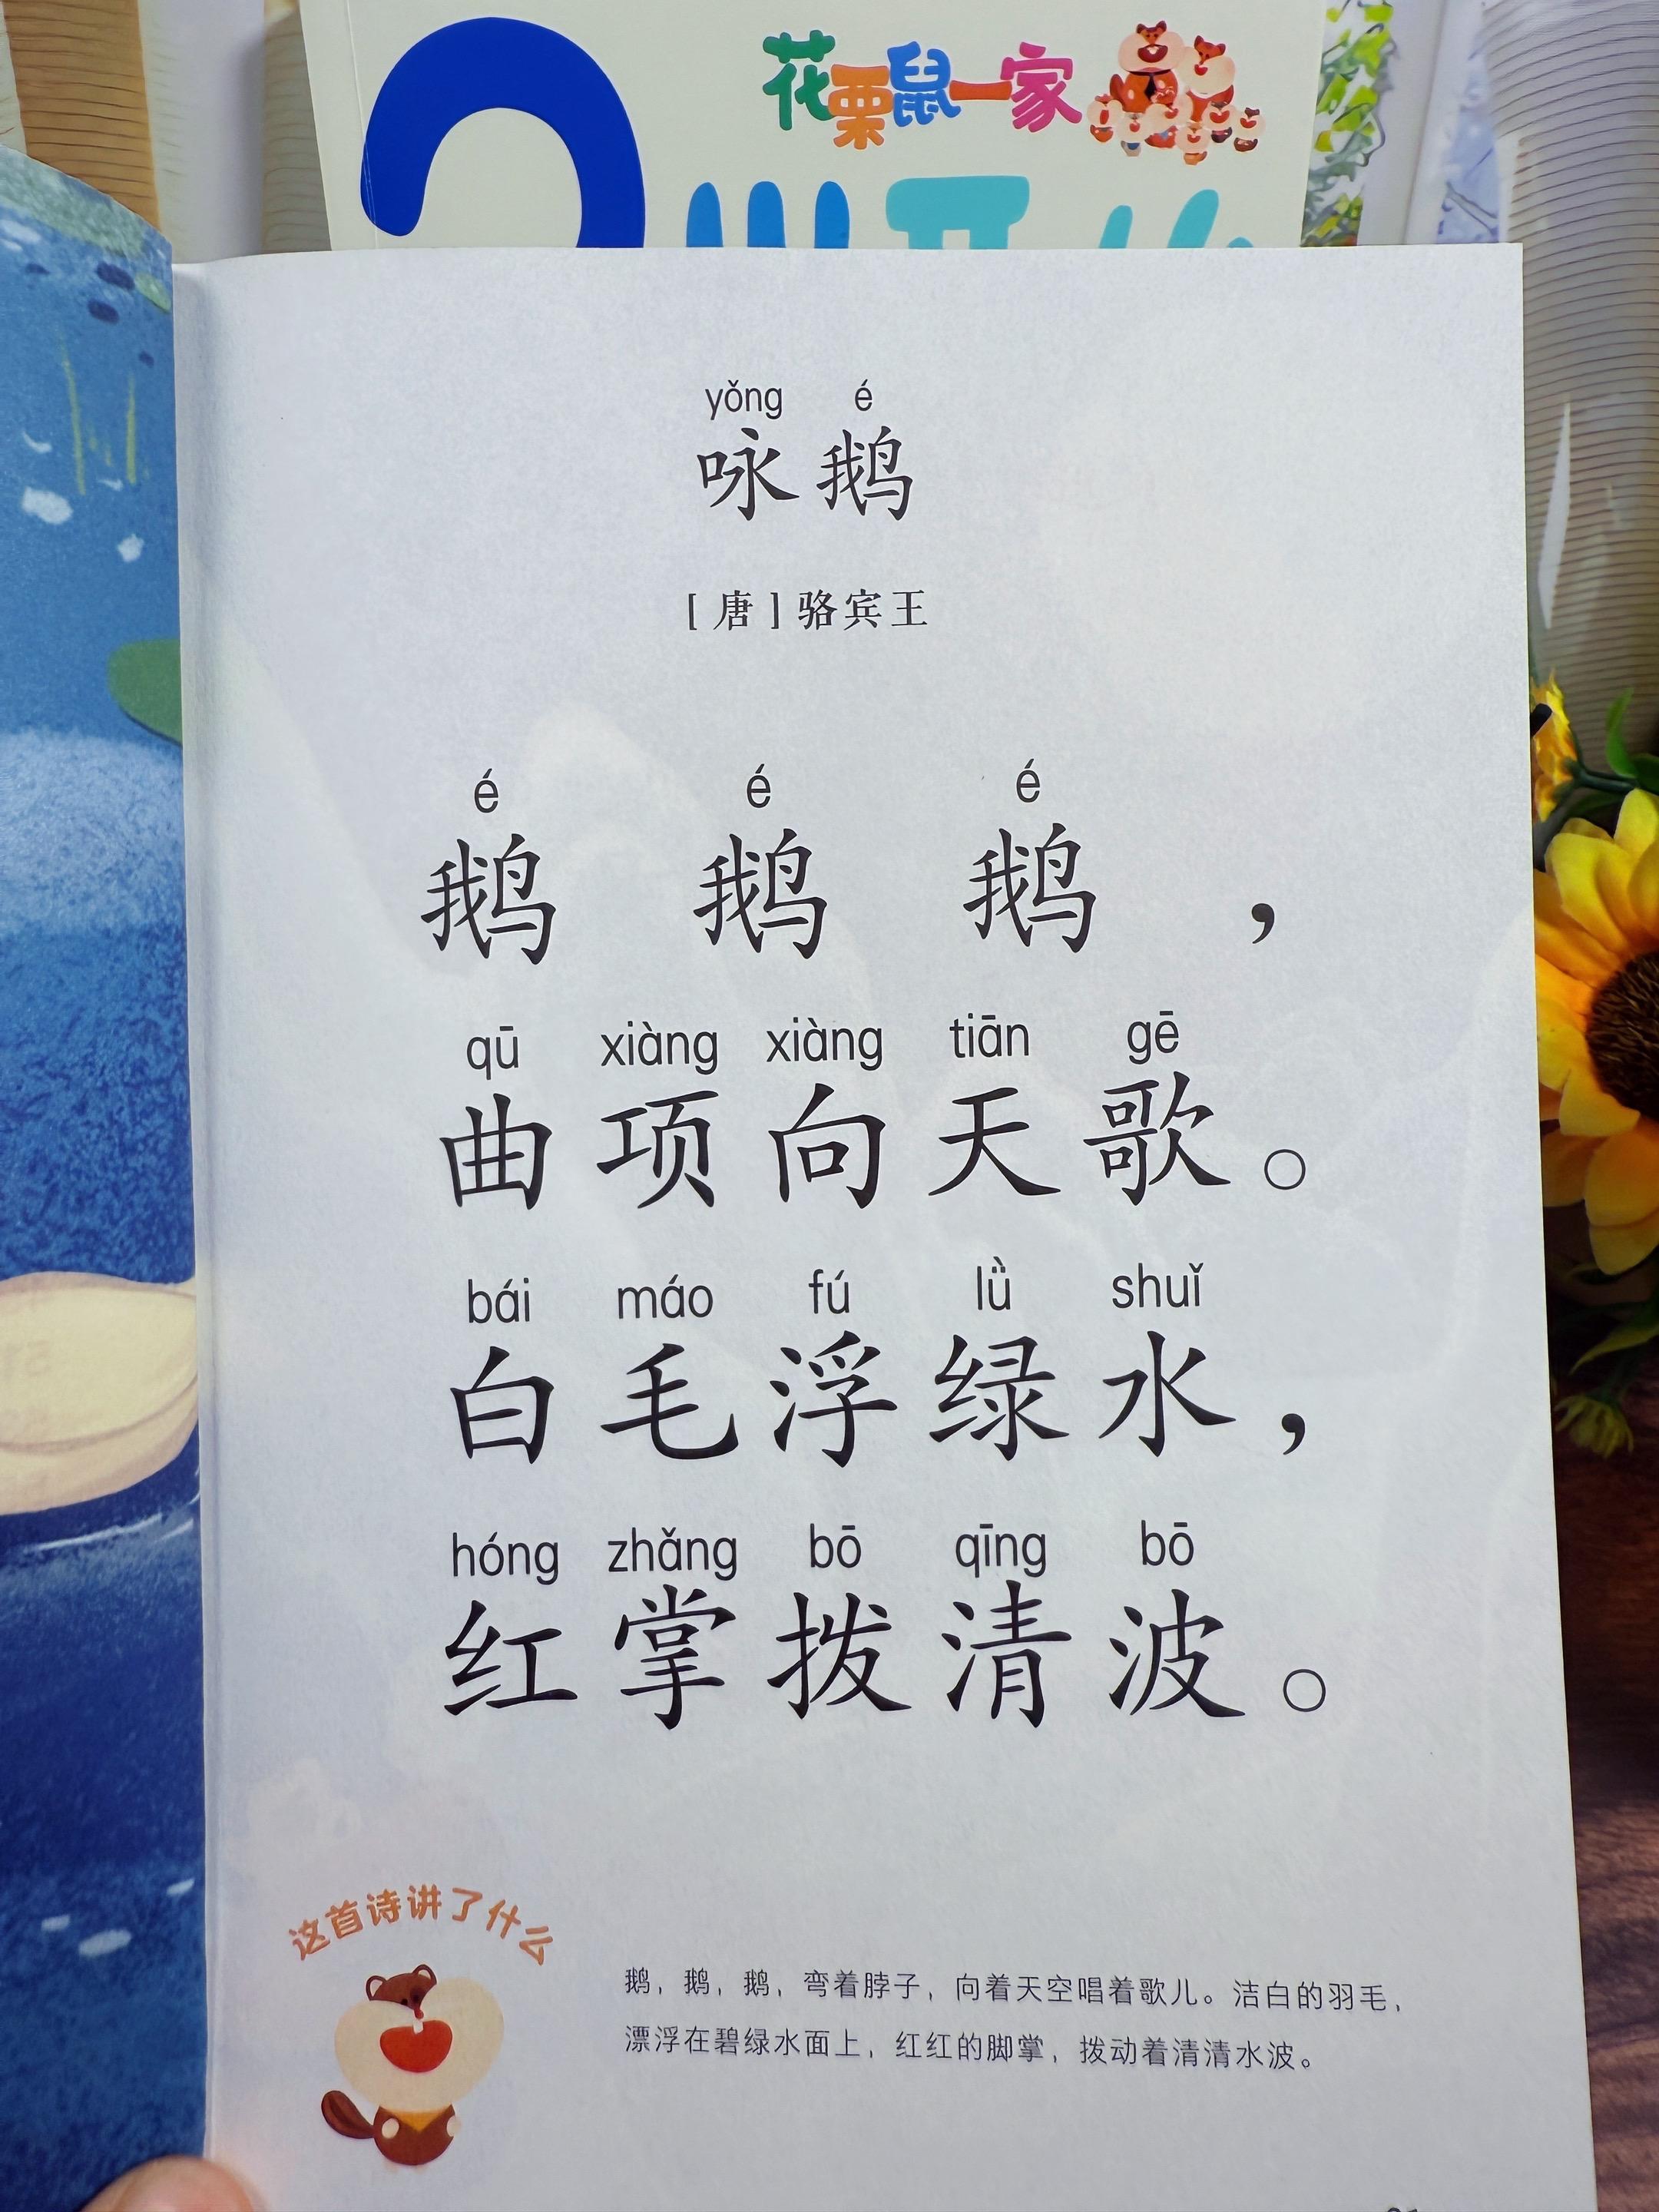 花栗鼠一家
yǒng é
咏鹅
[唐]骆宾王
é é é
鹅 鹅 鹅，
qū xiàng xiàng tiān gē
曲项向天歌。
bái máo fú lǜ shuǐ
白毛浮绿水，
hóng zhǎng bō qīng bō
红掌拨清波。
这首诗讲了什么
鹅，鹅，鹅，弯着脖子，向着天空唱着歌儿。洁白的羽毛，
漂浮在碧绿水面上，红红的脚掌，拨动着清清水波。